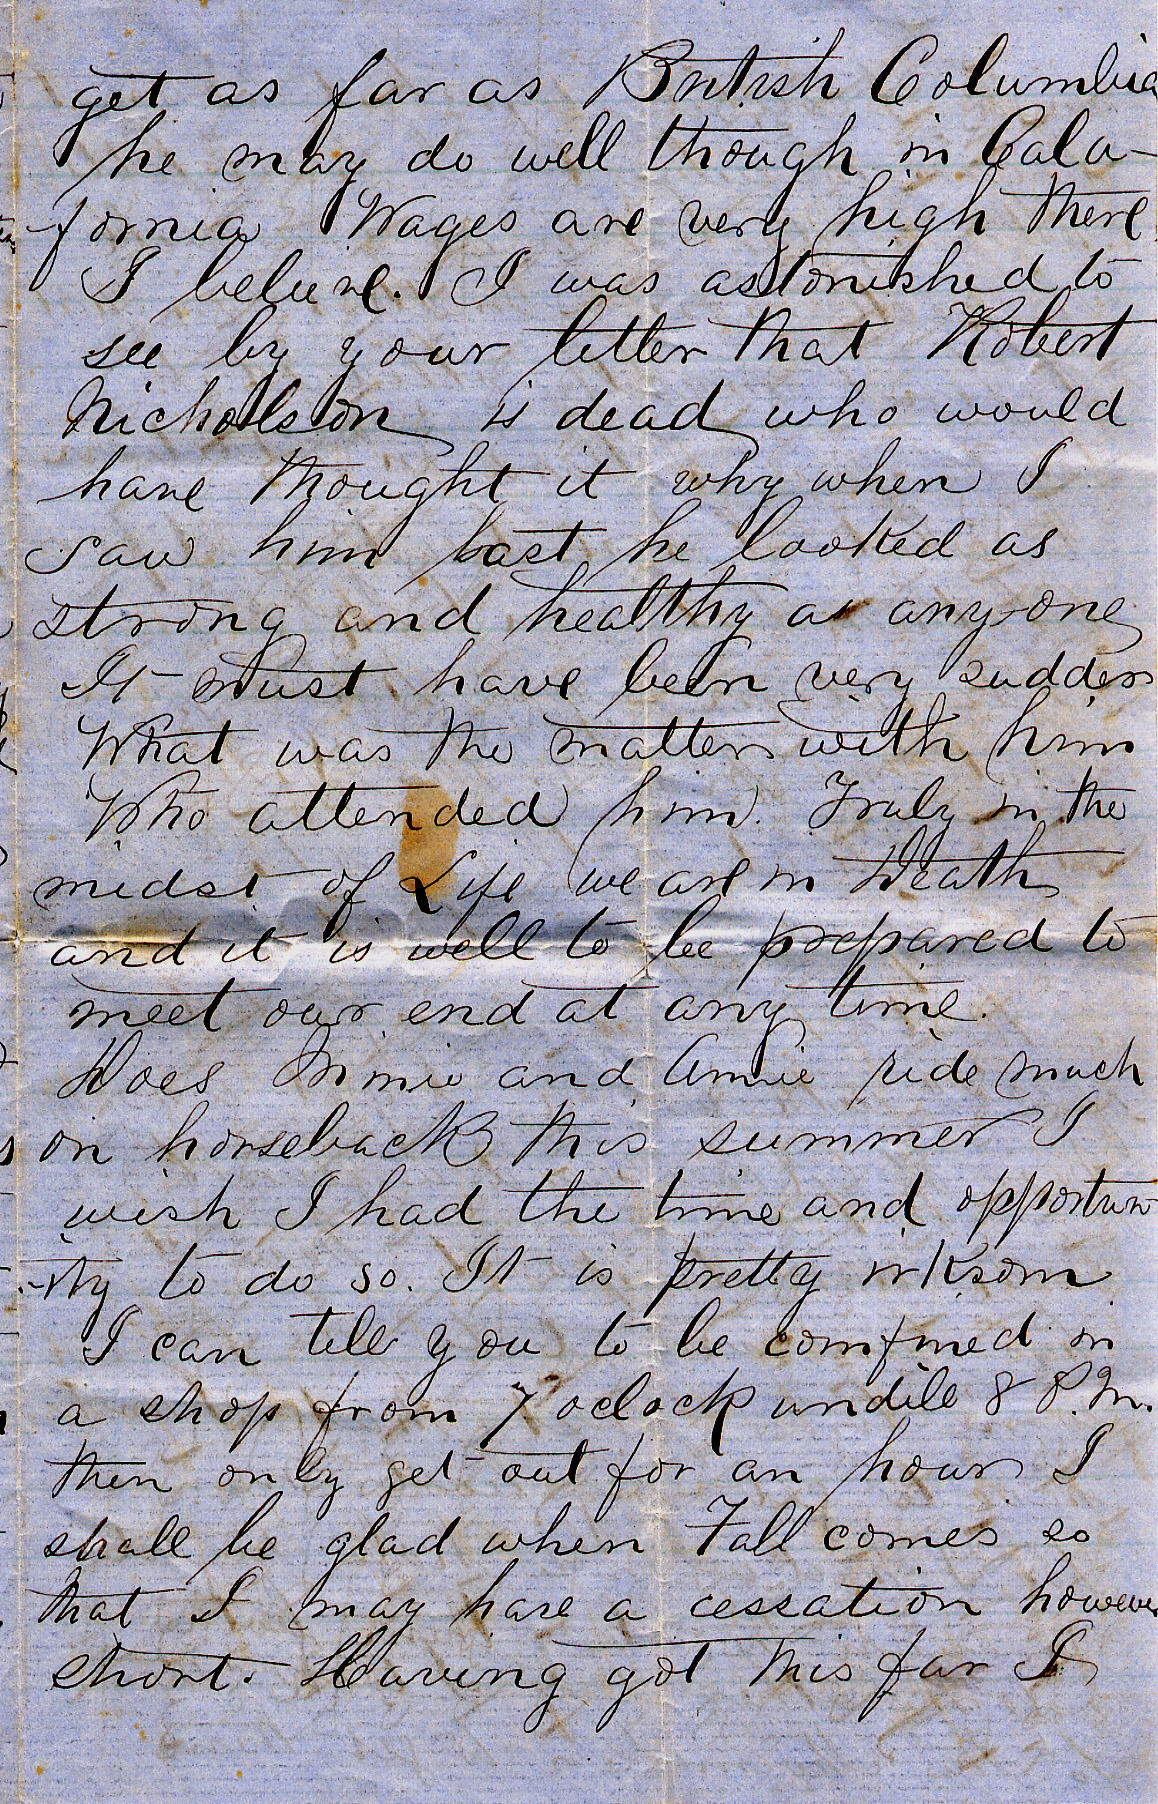 get as far as British Columbia
he may do well though in Cala-
fornia Wages are very high there
I believe. I was astonished to
see by your letter that Robert
Nicholson is dead who would
have thought it why when I
saw him last he looked as
strong and healthy as anyone
It must have been very sudden
What was the matter with him
Who attended him. Truly in the
midst of Life we are in Death
and it is well to be prepared to
meet our end at any time.
Does Minnie and Annie ride much
on horseback this summer I
wish I had the time and opportun
-ity to do so. It is pretty irksom
I can tell you to be confined in
a shop from 7 oclock undile 8 P.M.
then only get out for an hour I
shall be glad when Fall comes so
that I may have a cessation however
short. Having got this far I